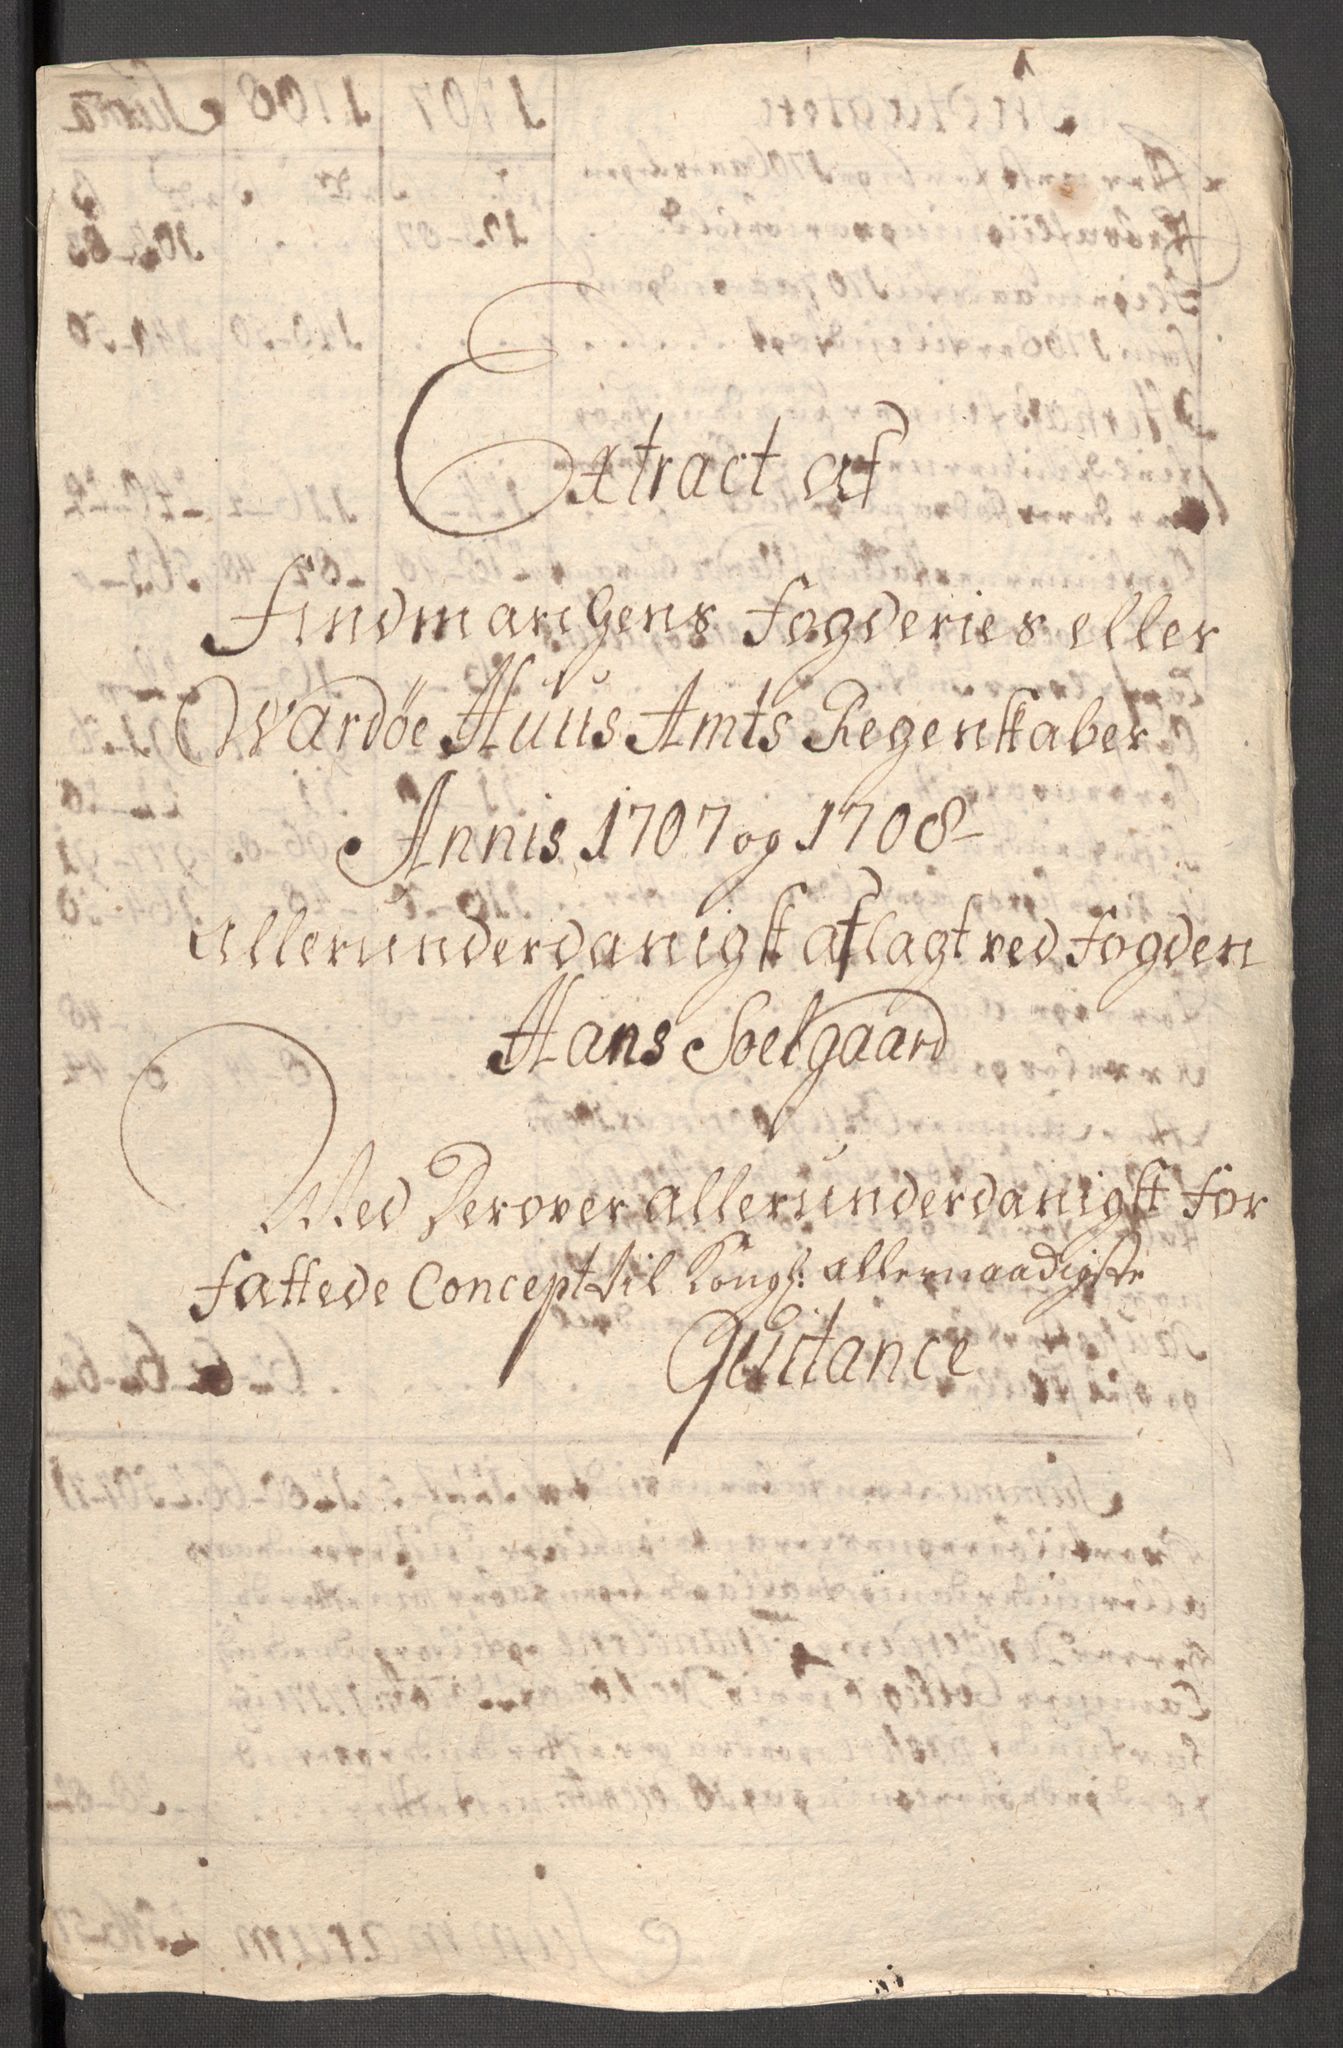 Extract af
Findmarchens Fogderies eller
Wardøe Huus Amts Regenskaber
Annis 1707 og 1708
allerunderdanigst aflagt ved Fogden
Hans Soelgaard
Med Derover allerunderdanigst for
fattede Concept til Kongl: allernaadigste
Quitance